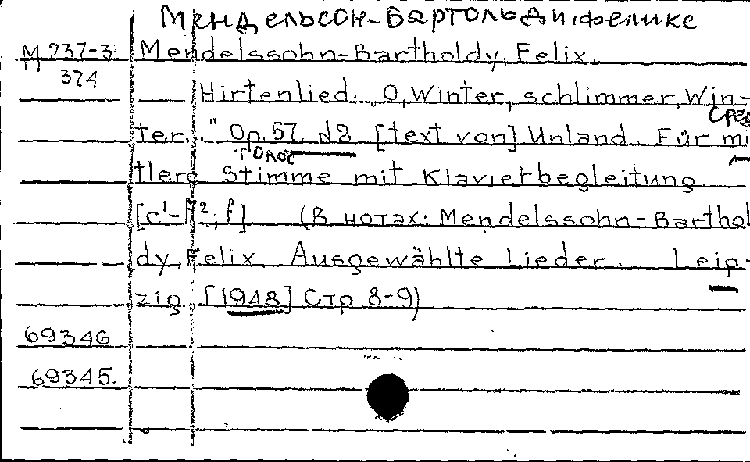 Мендельсон-Бартольди, Феликс
М 737-3 Mendelssohn-Bartholdy, Felix.
374
Hirtenlied. „O, Winter, schlimmer, Win-
сред
ter." Op. 57 d2 [text von] Unland. Für mi
голос
tlere Stimme mit Klavierbegleitung
(В нотах: Mendelssohn-Barthol
dy, Felix. Ausgewählte Lieder. Leip-
zig, [1948] Стр 8-9)
69346
69345.